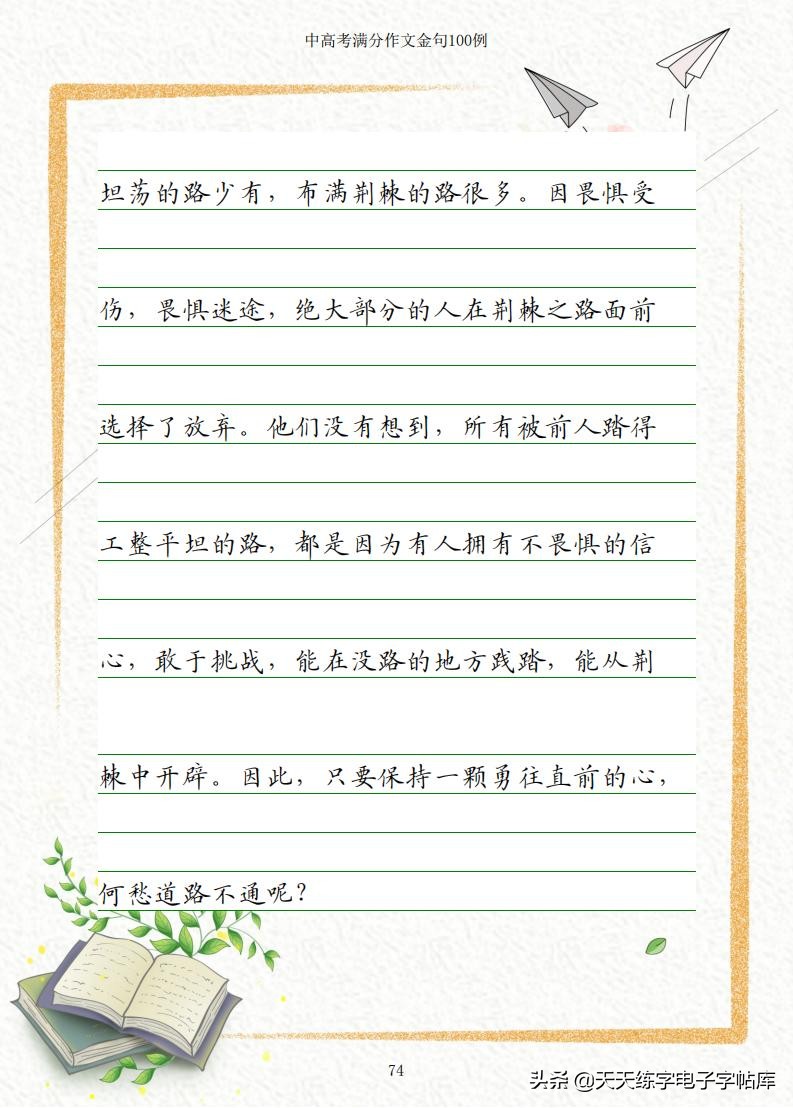 中高考满分作文金句100例
坦荡的路少有，布满荆棘的路很多。因畏惧受
伤，畏惧迷途，绝大部分的人在荆棘之路面前
选择了放弃。他们没有想到，所有被前人踏得
工整平坦的路，都是因为有人拥有不畏惧的信
心，敢于挑战，能在没路的地方践踏，能从荆
棘中开辟。因此，只要保持一颗勇往直前的心，
何愁道路不通呢？
74
头条 @天天练字电子字帖库